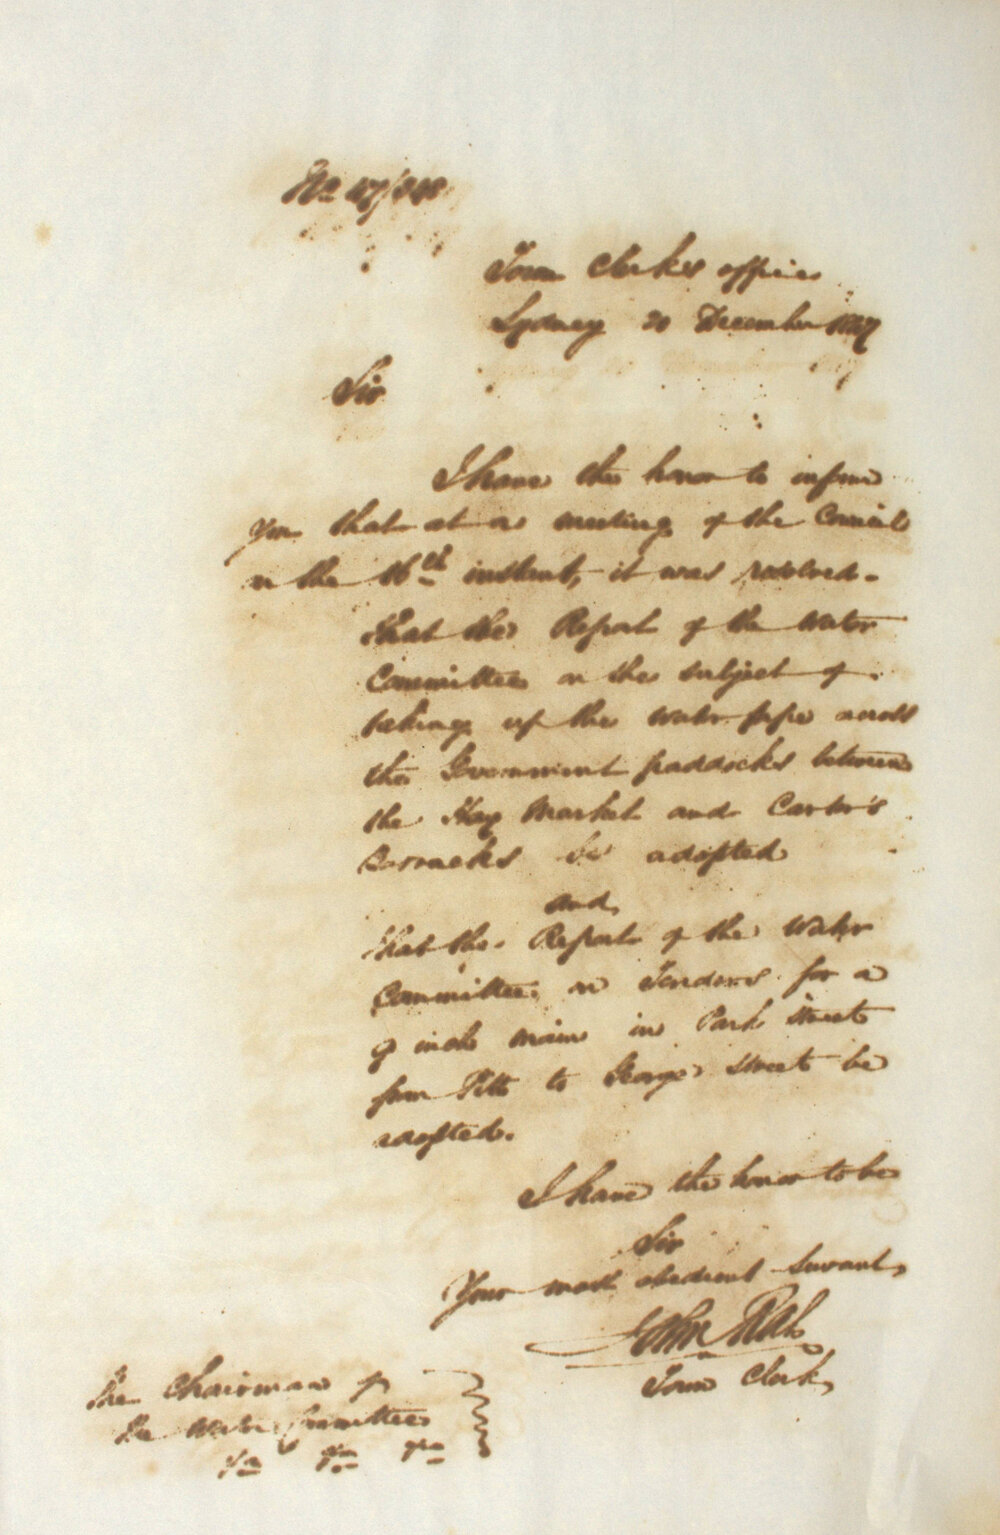 No 47/348
Town Clerks office
Sydney 20 December 1847
Sir
I have the honor to inform
you that at a meeting of the Council
on the 16th instant, it was resolved.
that the Report of the Water
Committee on the subject of
taking up the water pipe across
the Government paddocks between
the Hay Market and Carter's
Barracks be adopted
and,
that the Report of the Water
Committee on Tenders for a
9 inch main in Park Street
from Pitt to George Street be
adopted.
I have the honor to be
Sir
Your most obedient Servant,
John
Town Clerk,
The Chairman of
the Water Committee